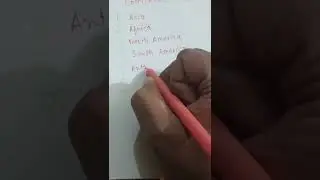 Asia
Africa
North America
South America
Ant